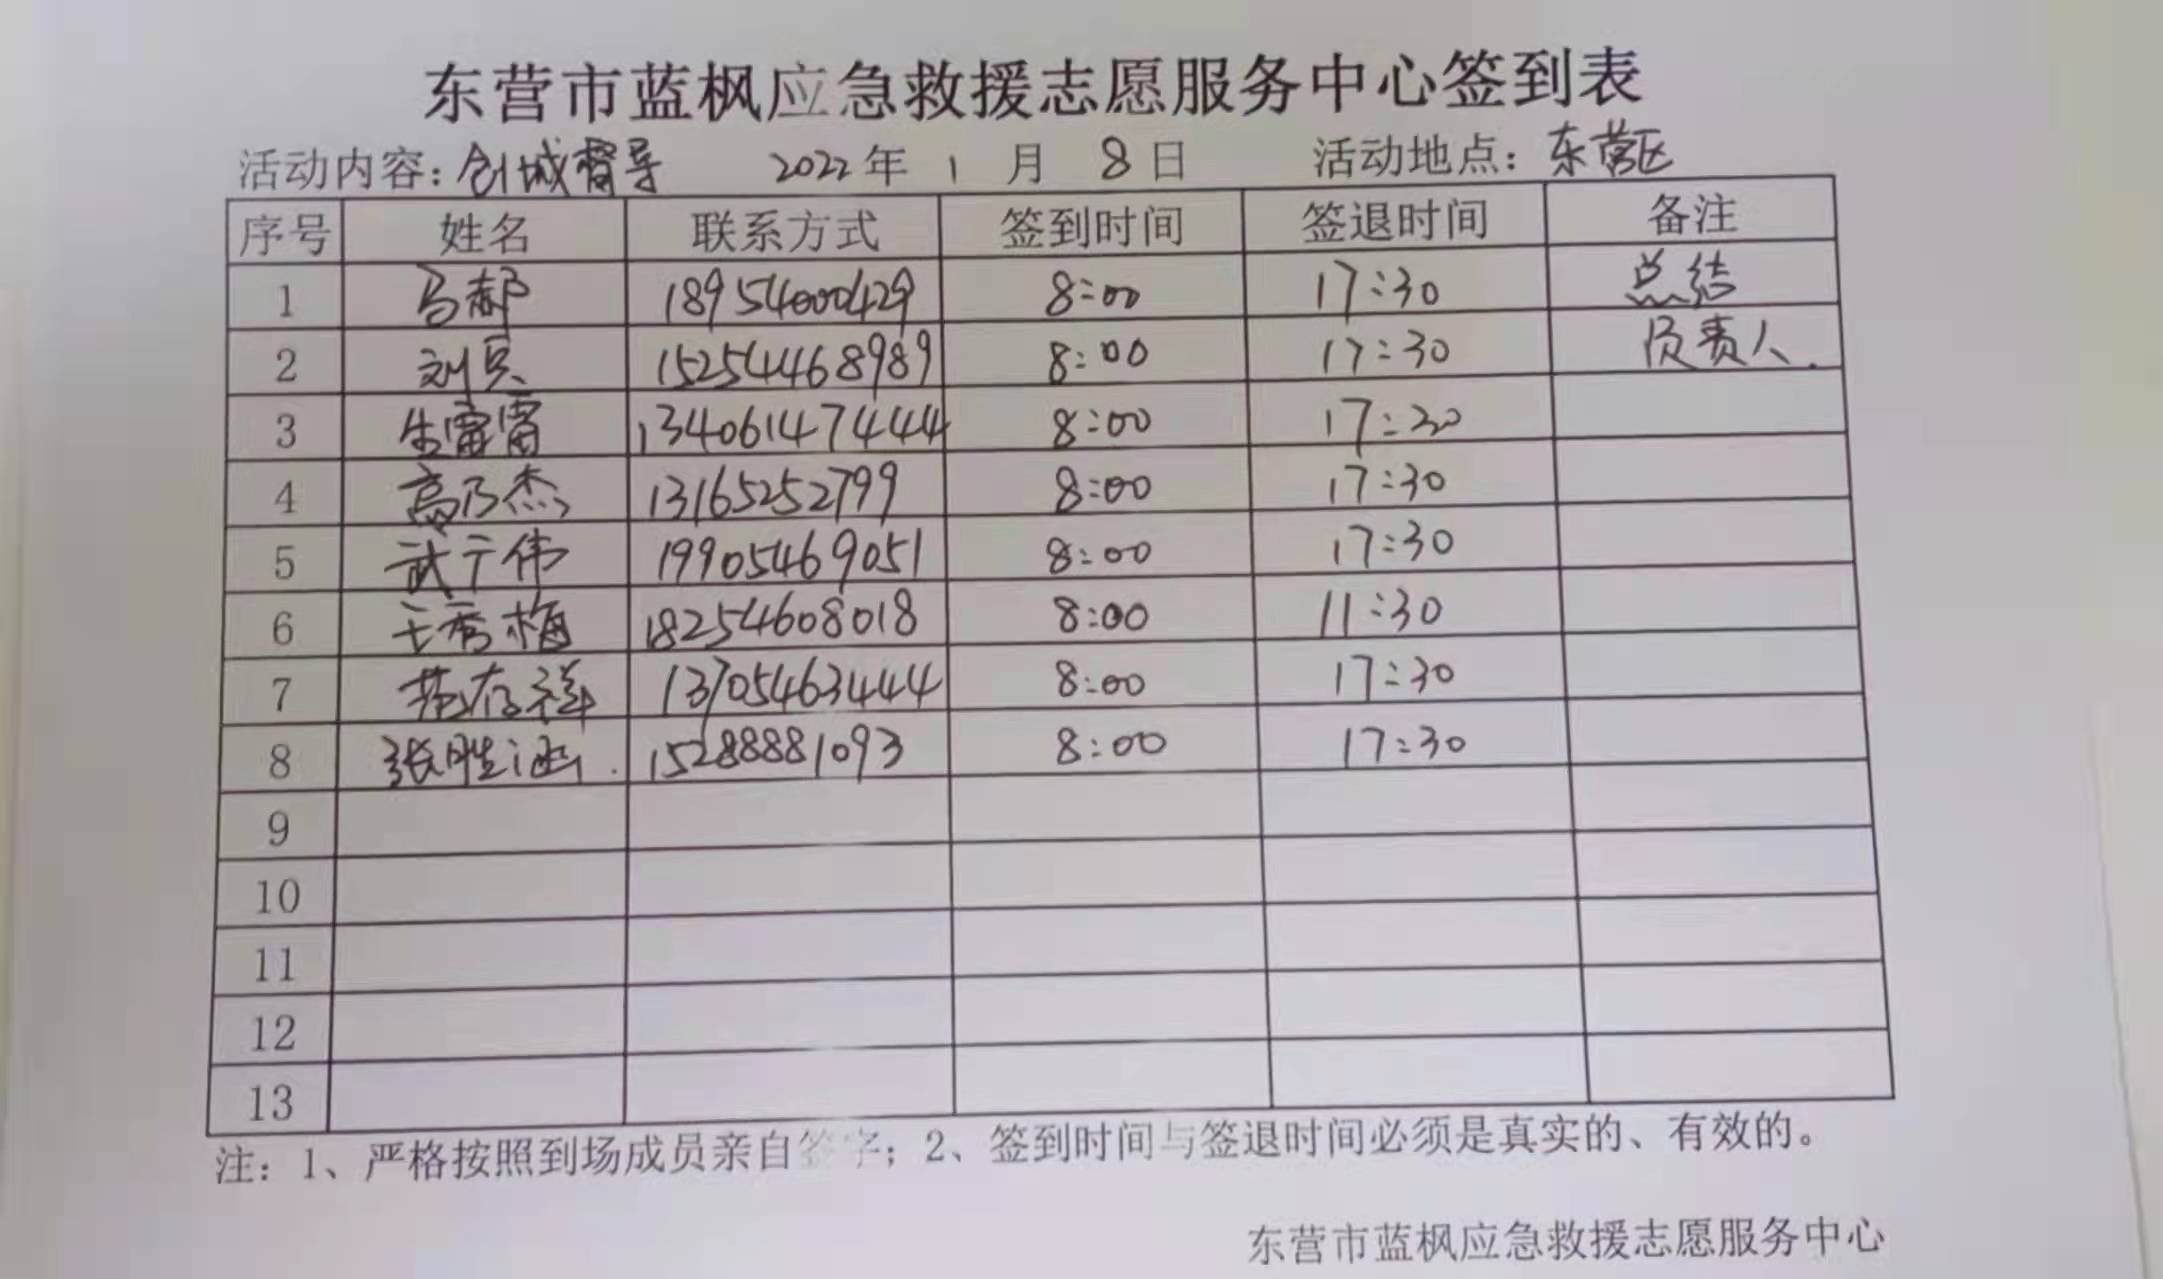 东营市蓝枫应急救援志愿服务中心签到表
活动内容：创城督导 2022年 1 月 8日 活动地点：东营区
序号 姓名 联系方式 签到时间 签退时间 备注
1 马郝 18954000429 8:00 17:30 总结
2 刘兵 15254468989 8:00 17:30 负责人.
3 生雷雷 13406147444 8:00 17:30
4 高乃杰 13165252799 8:00 17:30
5 武宁伟 19905469051 8:00 17:30
6 王秀梅 18254608018 8:00 11:30
7 范存祥 13705463444 8:00 17:30
8 张胜涵 15288881093 8:00 17:30
9
10
11
12
13
注：1、严格按照到场成员亲自签字；2、签到时间与签退时间必须是真实的、有效的。
东营市蓝枫应急救援志愿服务中心